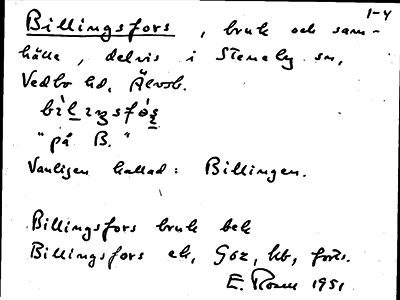 1-4
Billingsfors, bruk och sam-
hälle, delvis i Steneby sn,
Vedbo hd, Älvsb.
"på B."
Vanligen kallad: Billingen.
Billingsfors bruk bek
Billingsfors ek, Goz, hb, forts.
E. Rosen 1951